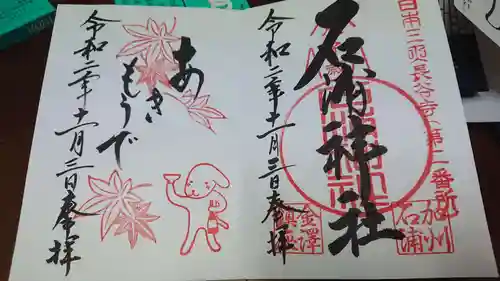 日本三所長谷寺第二番所
石浦神社
令和二年十一月三日奉拝
加州
石浦
金澤
鎮座
あき
もうで
令和二年十一月三日奉拝